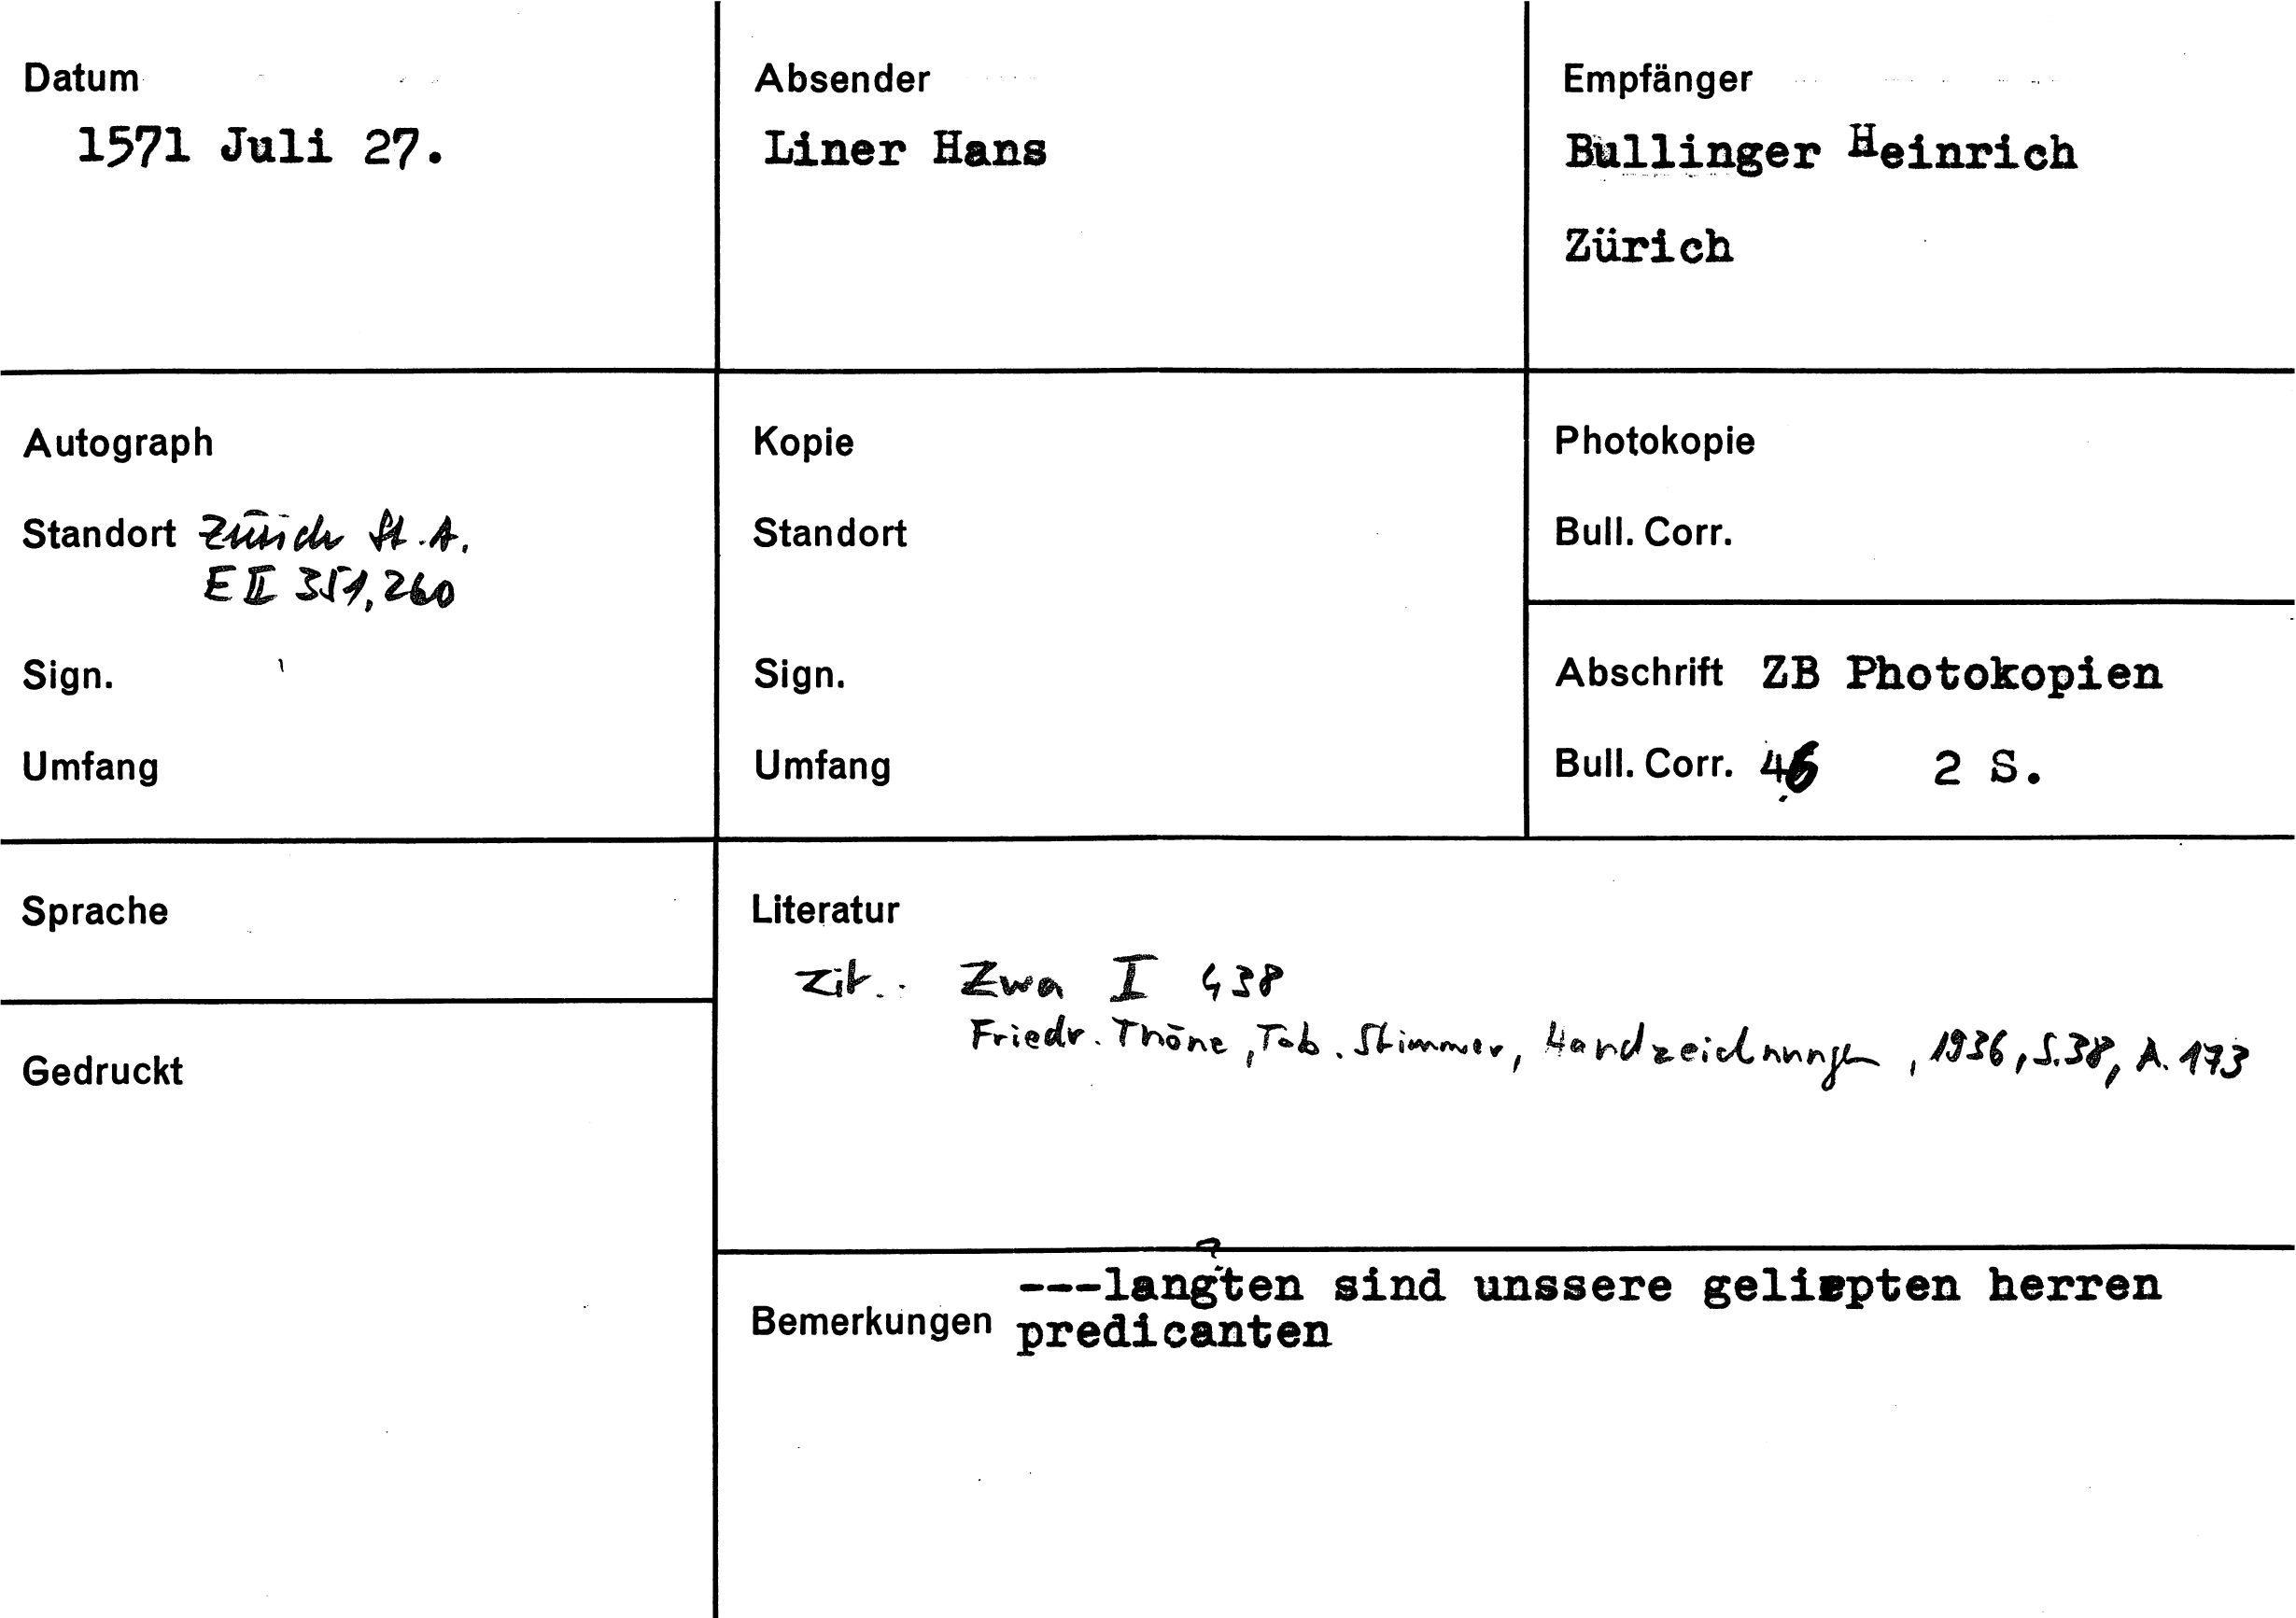 Datum
1571 Juli 27.
Absender
Liner Hans
Empfänger
Bullinger Heinrich
Zürich
Autograph
Standort Zürich St. A.
E II 351, 260
Sign.
Umfang
Kopie
Standort
Sign.
Umfang
Photokopie
Bull. Corr.
Abschrift ZB Photokopien
Bull. Corr. 46 2 S.
Sprache
Gedruckt
Literatur
Zit.: Zwa I 438
Friedr. Thöne, Tob. Stimmer, Handzeichnungen, 1936, S.38, A. 173
Bemerkungen
?
---langten sind unssere geliepten herren
predicanten